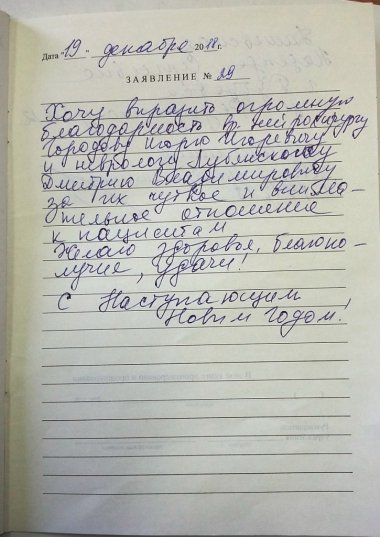 Дата "19" декабря 2018 г.
ЗАЯВЛЕНИЕ № 29
Хочу выразить огромную
благодарность вр. нейрохирургу
Городову Игорю Игоревичу
и неврологу Лубянскому
Дмитрию Владимировичу
за их чуткое и внима-
тельное отношение
к пациентам
Желаю здоровья, благопо-
лучие, удачи!
С Наступающим
Новым годом!